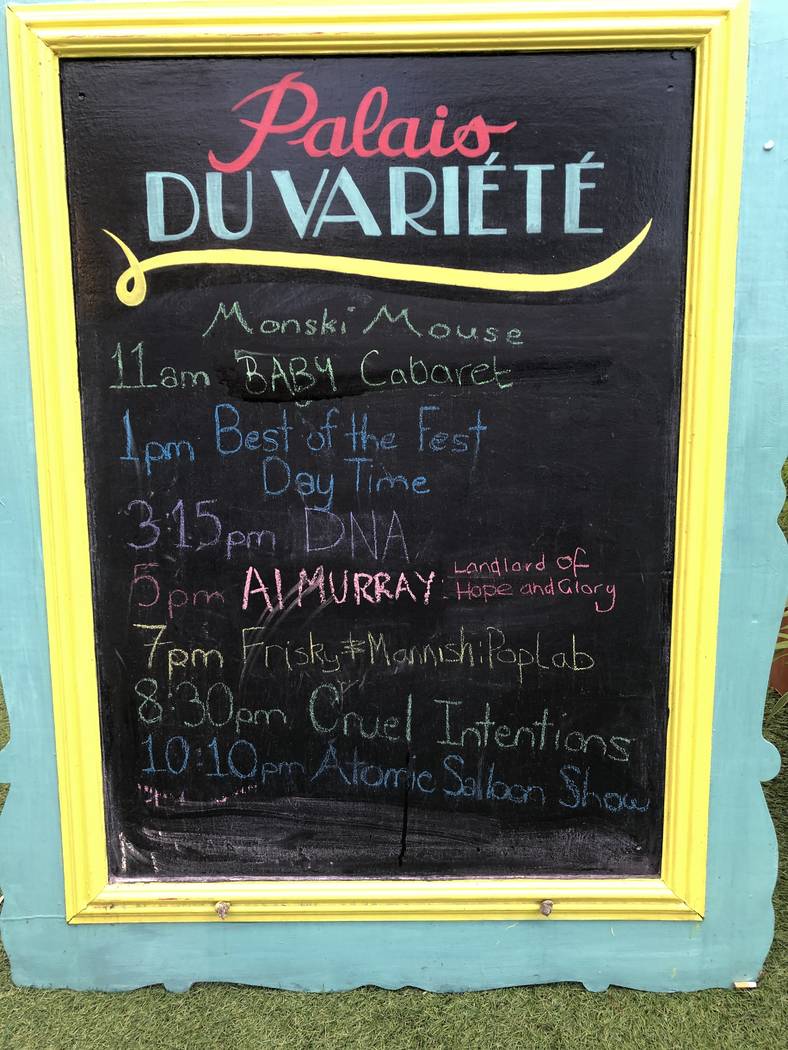 Palais
DU VARIÉTÉ
Monski Mouse
11am BABY Cabaret
1pm Best of the Fest
Day Time
3:15pm DNA
5pm Al MURRAY: Landlord of
Hope and Glory
7pm Frisky & Mannish: PopLab
8:30pm Cruel Intentions
10:10pm Atomic Salloon Show